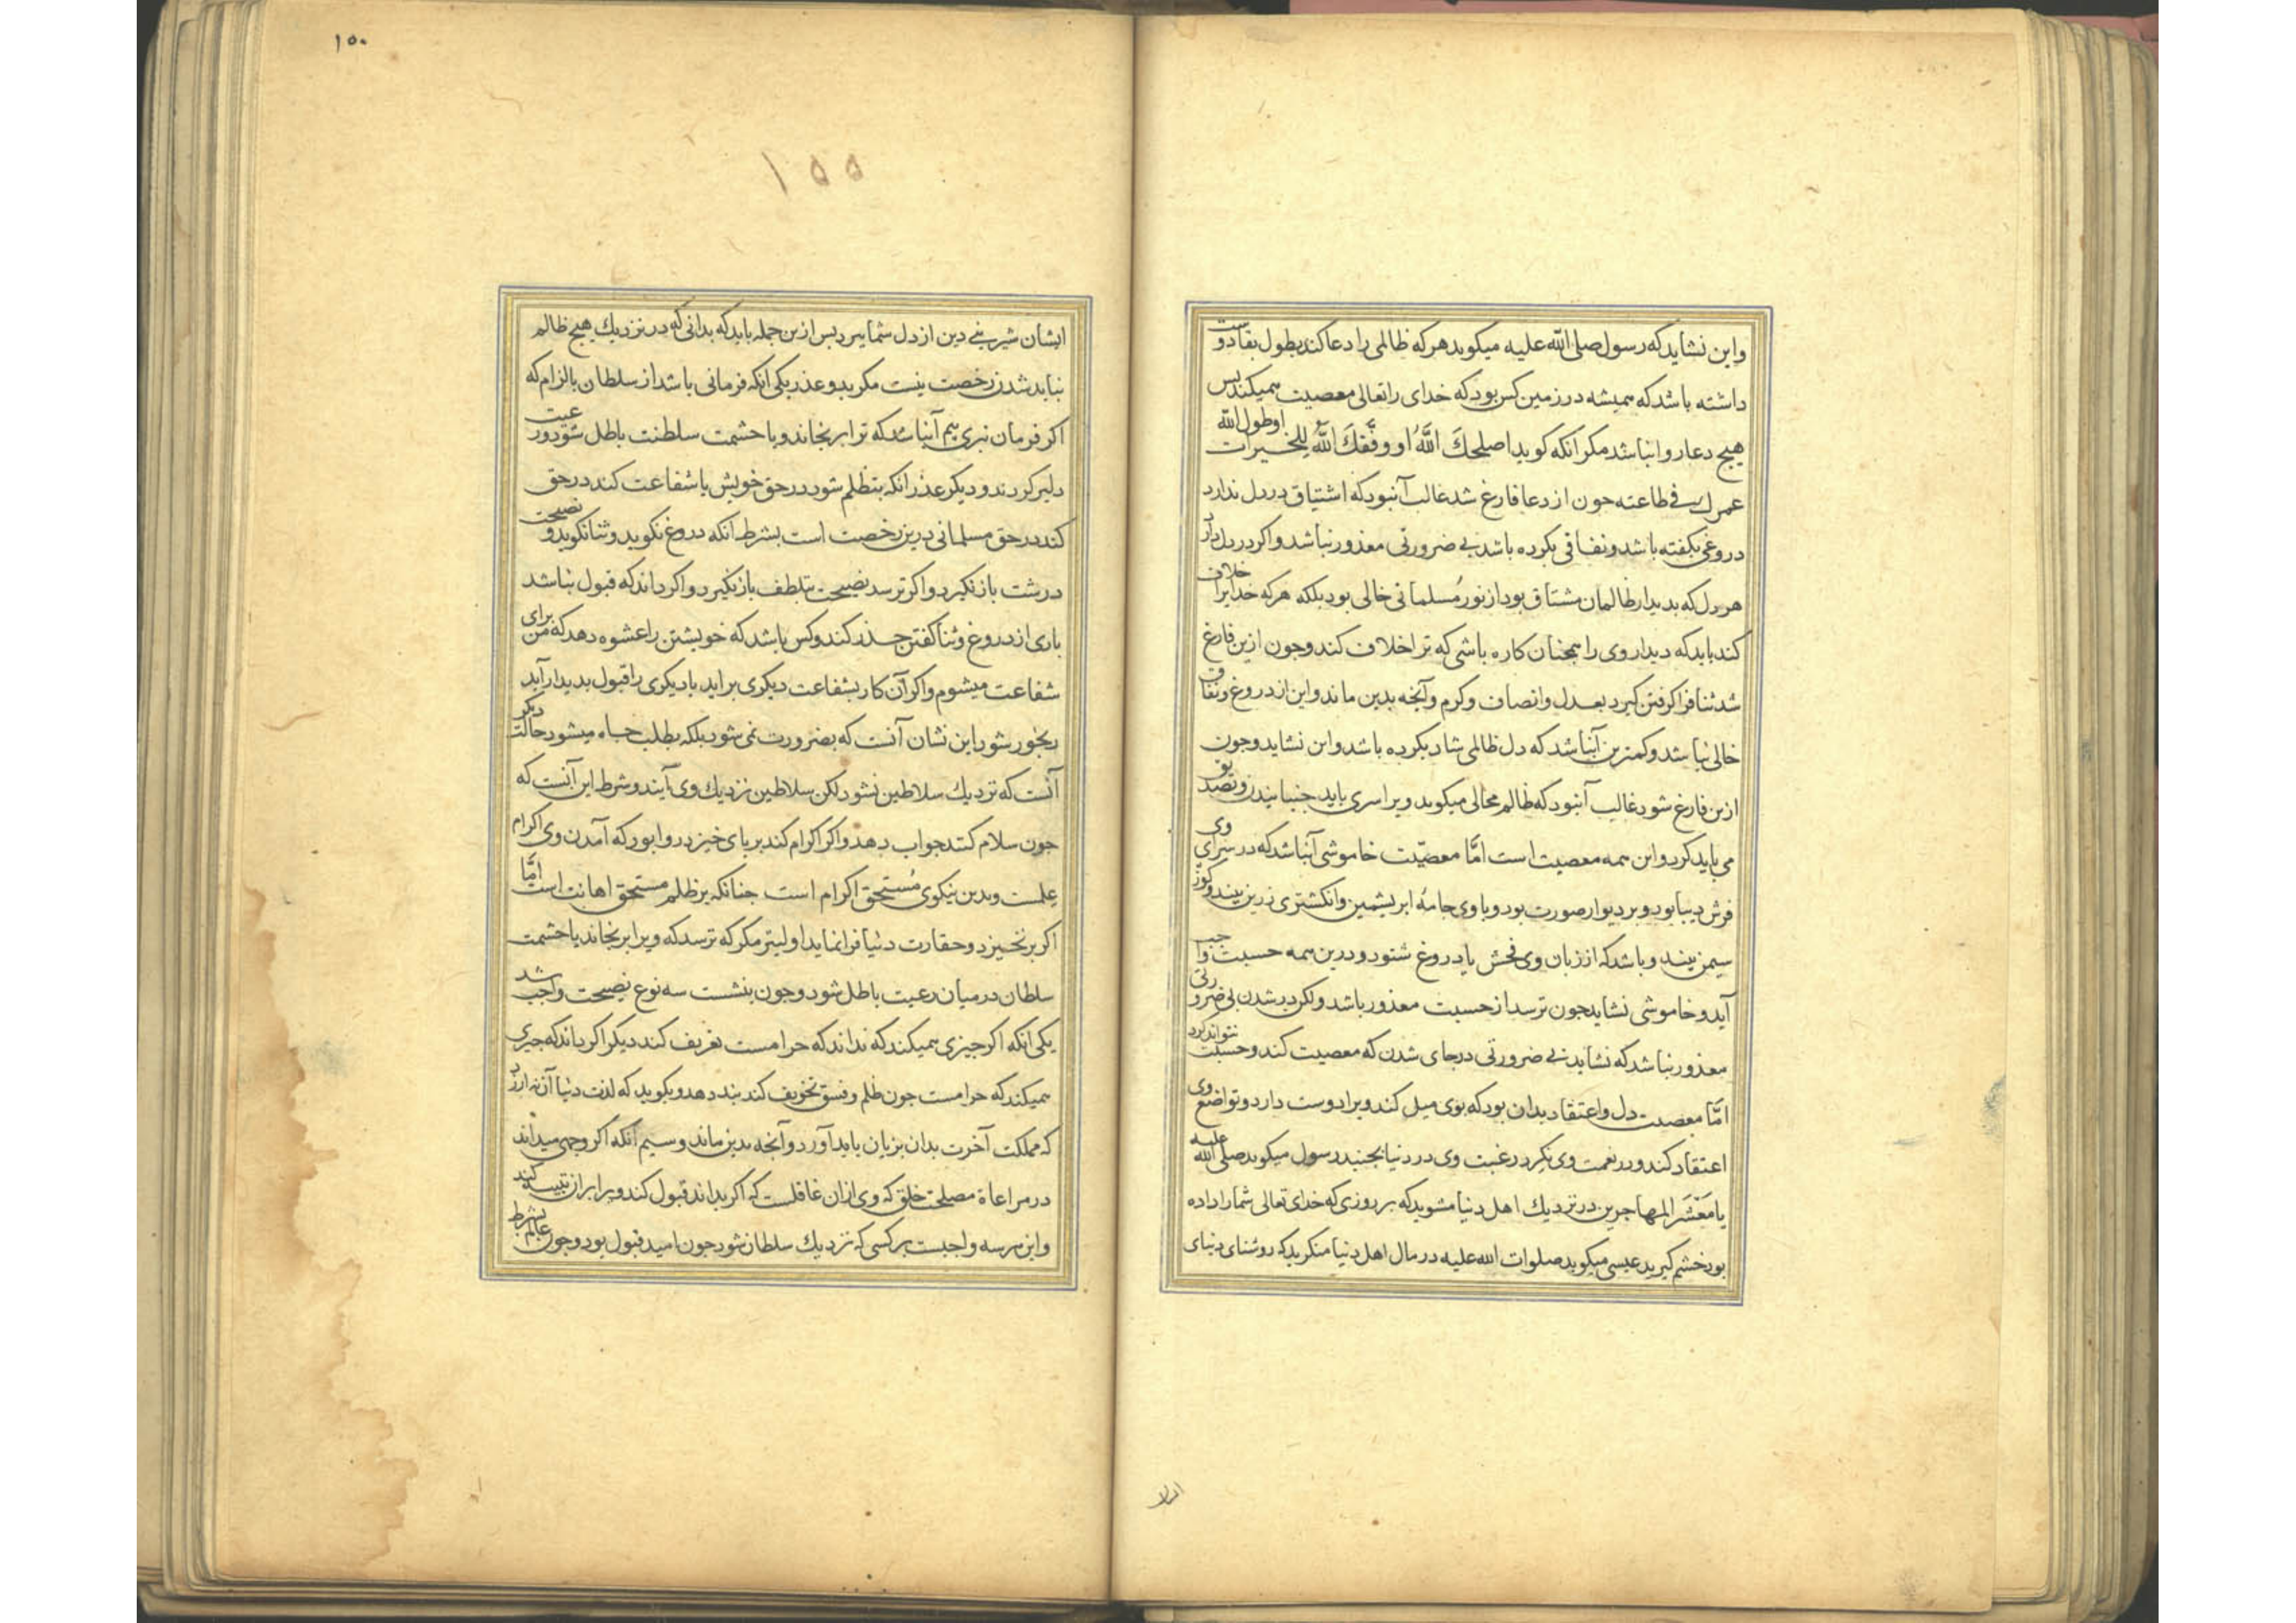 واین نشاید که رسول صلی الله علیه میکوید هر که ظالمی را دعا کند بطول بقا دوست
داشته باشد که همیشه در زمین کس بود که خدای را تعالی معصیت همیکند پس
هیج دعا روا نباشد مکر انکه کوید اصلحك اللّٰه او وفّقك اللّٰه للخیرات او طول الله
عمرك فی طاعته جون از دعا فارغ شد غالب آنبود که اشتیاق در دل ندارد
دروغی بکفته باشد و نفاقی بکرده باشد بی ضرورتی معذور نباشد و اکر در دل دارد
هر دل که بدیدار ظالمان مشتاق بود از نور مُسلمانی خالی بود بلکه هر که خدایرا خلاف
کند باید که دیدار وی را همجنان کاره باشی که ترا خلاف کند وجون ازین فارغ
شد ثنا فرا کرفتن کیرد بعدل وانصاف وکرم وآنجه بدین ماند واین از دروغ ونفاق
خالی نباشد وکمترین آنباشد که دل ظالمی شاد بکرده باشد واین نشاید وجون
ازین فارغ شود غالب آنبود که ظالم محالی میکوید ویرا سری باید جنبانیدن وتصدیق
می باید کرد و این همه معصیت است امّا معصیّت خاموشی آنباشد که در سرای وی
فرش دیبا بود وبر دیوار صورت بود وبا وی جامهٔ ابریشمین وانکشتری زرین بیند وکوزه
سیمین بیند وباشد که از زبان وی فحش یا دروغ شنود ودرین همه حسبت واجب
آید وخاموشی نشاید جون ترسد از حسبت معذور باشد ولکن در شدن بی ضرورتی
معذور نباشد که نشاید بی ضرورتی در جای شدن که معصیت کند وحسبت نتواند کرد
امّا معصیت دل واعتقاد بدان بود که بوی میل کند ویرا دوست دارد وتواضع وی
اعتقاد کند ودر نعمت وی نکرد رغبت وی در دنیا بجنبد رسول میکوید صلی الله علیه
یا مَعْشَرَ المهاجرین در نزدیك اهل دنیا مشوید که بر روزی که خدای تعالی شما را داده
بود خشم کیرید عیسی میکوید صلوات الله علیه در مال اهل دنیا منکرید که روشنای دنیای
۱۵۰
۱۵۵
ایشان شیرینی دین از دل شما ببرد پس ازین جمله باید که بدانی که در نزدیك هیج ظالم
نباید شدن رخصت نیست مکر بدو عذر یکی انکه فرمانی باشد از سلطان بالزام که
اکر فرمان نبری بیم آنباشد که ترا برنجاند ویا حشمت سلطنت باطل شود ورعیت
دلیر کردند و دیکر عذر انکه بتظلم شود در حق خویش یا شفاعت کند در حق
کند در حق مسلمانی درین رخصت است بشرط انکه دروغ نکوید وثنا نکوید و نصیحت
درشت بازنکیرد واکر ترسد نصیحت بتلطف بازنکیرد واکر داند که قبول نباشد
باری از دروغ وثنا کفتن حذر کند وکس باشد که خویشتن را عشوه دهد که من برای
شفاعت میشوم واکر آن کار بشفاعت دیکری براید یا دیکری را قبول بدیدار آید
رنجور شود این نشان آنست که بضرورت نمی شود بلکه بطلب جاه میشود حالت دیکر
آنست که نزدیك سلاطین نشود لکن سلاطین نزدیك وی آیند وشرط این آنست که
جون سلام کنند جواب دهد واکر اکرام کند بر پای خیزد روا بود که آمدن وی اکرام
علمست وبدین نیکوی مُستحق اکرام است جنانکه بر ظلم مستحق اهانت است امّا
اکر برنخیزد وحقارت دنیا فرا نماید اولیتر مکر که ترسد که ویرا برنجاند یا حشمت
سلطان در میان رعیت باطل شود وجون بنشست سه نوع نصیحت واجب شد
یکی انکه اکر جیزی همیکند که نداند که حرامست تعریف کند دیکر اکر داند که جیزی
همیکند که حرامست جون ظلم وفسق تخویف کند پند دهد وبکوید که لذت دنیا آن نه ارزد
که مملکت آخرت بدان بزیان باید آورد وآنجه بدین ماند وسیم انکه اکر وجهی میداند
در مراعاة مصلحت خلق که وی ازان غافلست که اکر بداند قبول کند ویرا بران تنبیه کند
واین هر سه واجبست بر کسی که نزدیك سلطان شود جون امید قبول بود وجون عالم بشرط